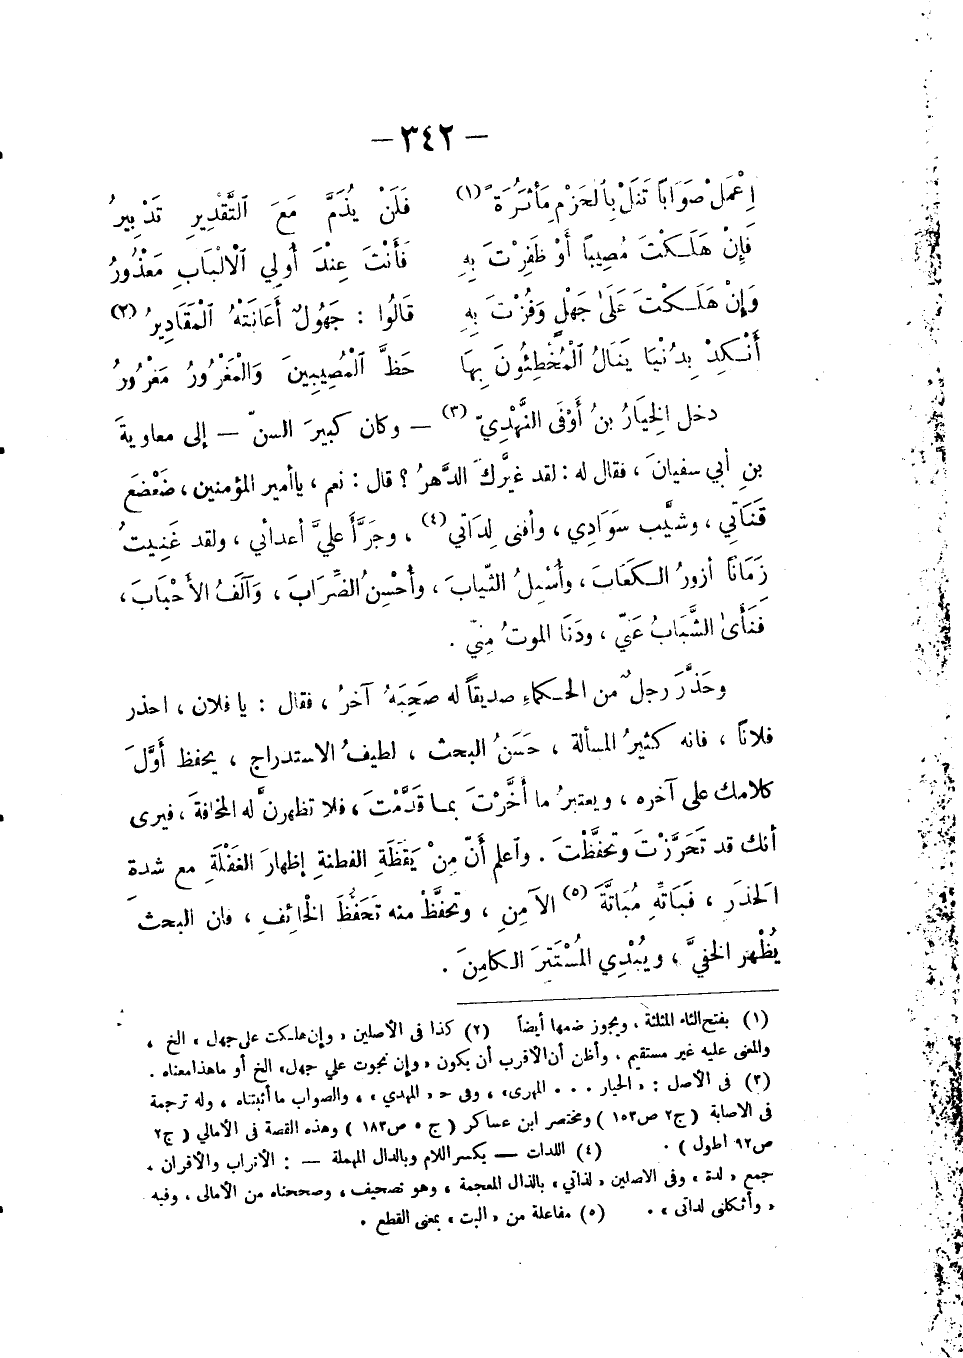 — ٣٤٢ —
اِعْمَلْ صَوَابًا تَنَلْ بِالْحَزْمِ مَأْثَرَةً (١) فَلَنْ يُذَمَّ مَعَ التَّقْدِيرِ تَدْبِيرُ
فَإِنْ هَلَكْتَ مُصِيبًا أَوْ ظَفِرْتَ بِهِ فَأَنْتَ عِنْدَ أُولِي الْأَلْبَابِ مَعْذُورُ
وَإِنْ هَلَكْتَ عَلَىٰ جَهْلٍ وَفُزْتَ بِهِ قَالُوا : جَهُولٌ أَعَانَتْهُ الْمَقَادِيرُ (٢)
أَنْكِدْ بِدُنْيَا يَنَالُ الْمُخْطِئُونَ بِهَا حَظَّ الْمُصِيبِينَ وَالْمَغْرُورُ مَغْرُورُ
دخل الخِيَارُ بنُ أَوْفَى النَّهْدِيّ (٣) — وكان كبيرَ السنّ — إلى معاويةَ
بنِ أبي سفيانَ ، فقال له : لقد غيَّركَ الدَّهرُ ؟ قال : نعم ، ياأمير المؤمنين ، ضَعْضَعَ
قَنَاتِي ، وشيَّب سَوَادِي ، وأفنى لِدَاتي (٤) ، وجَرَّأَ عليَّ أعدائي ، ولقد غَنِيتُ
زَمَانًا أزورُ الكَعَابَ ، وأُسْبِلُ الثّيابَ ، وأُحْسِنُ الضِّرَابَ ، وَآلَفُ الأَحْبَابَ ،
فَنَأَىٰ الشَّبَابُ عَنِّي ، ودَنَا الموتُ مِنِّي .
وحَذَّرَ رجلٌ من الحكماءِ صديقاً له صَحِبَهُ آخرُ ، فقال : يا فلان ، احذر
فلاناً ، فانه كثيرُ المسألة ، حَسَنُ البحث ، لطيفُ الاستدراج ، يحفظ أَوَّلَ
كلامك على آخره ، ويعتبرُ ما أَخَّرْتَ بما قَدَّمْتَ ، فلا تظهرنَّ له المخافةَ ، فيرى
أنك قد تَحَرَّزْتَ وتحفَّظْتَ . واعلم أَنّ مِنْ يَقَظَةِ الفطنةِ إظهارَ الغَفْلَةِ مع شدةِ
الحذَرِ ، فَبَاتَّهِ مُبَاتَّةَ (٥) الآمِنِ ، وتحفَّظْ منه تَحَفُّظَ الخائِفِ ، فان البحثَ
يُظْهر الخفيَّ ، ويُبْدِي المُسْتَتِرَ الكامِنَ .
(١) بفتح الثاء المثلثة ، ويجوز ضمها أيضاً (٢) كذا فى الأصلين « وإن هلكت على جهل » الخ ،
والمعنى عليه غير مستقيم ، وأظن أن الأقرب أن يكون « وإن نجوت علي جهل » الخ أو ما هذا معناه .
(٣) فى الأصل : « الخيار ... المهرى » ، وفى ح « المهدي » ، والصواب ما أثبتناه ، وله ترجمة
فى الاصابة ( ج٢ ص١٥٣ ) ومختصر ابن عساكر ( ج ٥ ص١٨٣ ) وهذه القصة فى الأمالي ( ج٢
ص٩٢ أطول ) . (٤) اللدات — بكسر اللام وبالدال المهملة — : الأتراب والأقران ،
جمع « لدة » وفى الاصلين « لذاتي » بالذال المعجمة ، وهو تصحيف ، وصححناه من الأمالى ، وفيه
« وأثكلنى لداتى » . (٥) مفاعلة من « البت » بمعنى القطع .